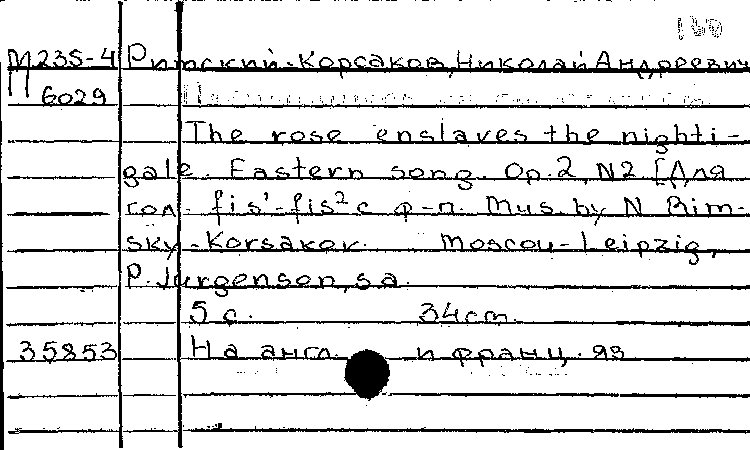 М235-4 Римский-Корсаков, Николай Андреевич
П 6029
The rose enslaves the nighti-
gale. Eastern song. Op.2, N2 [Для
гол. fis¹-fis² с ф-п. Mus. by N. Rim-
sky-Korsakov. Moscou-Leipzig,
P. Jurgenson, s.a.
5 с. 34cm.
35853 На англ. и франц. яз